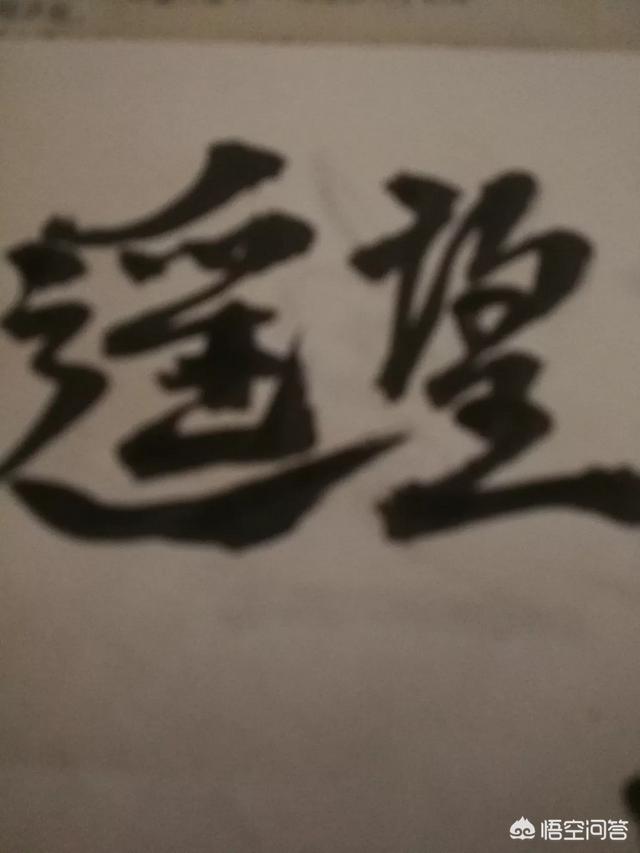 遥望
悟空问答